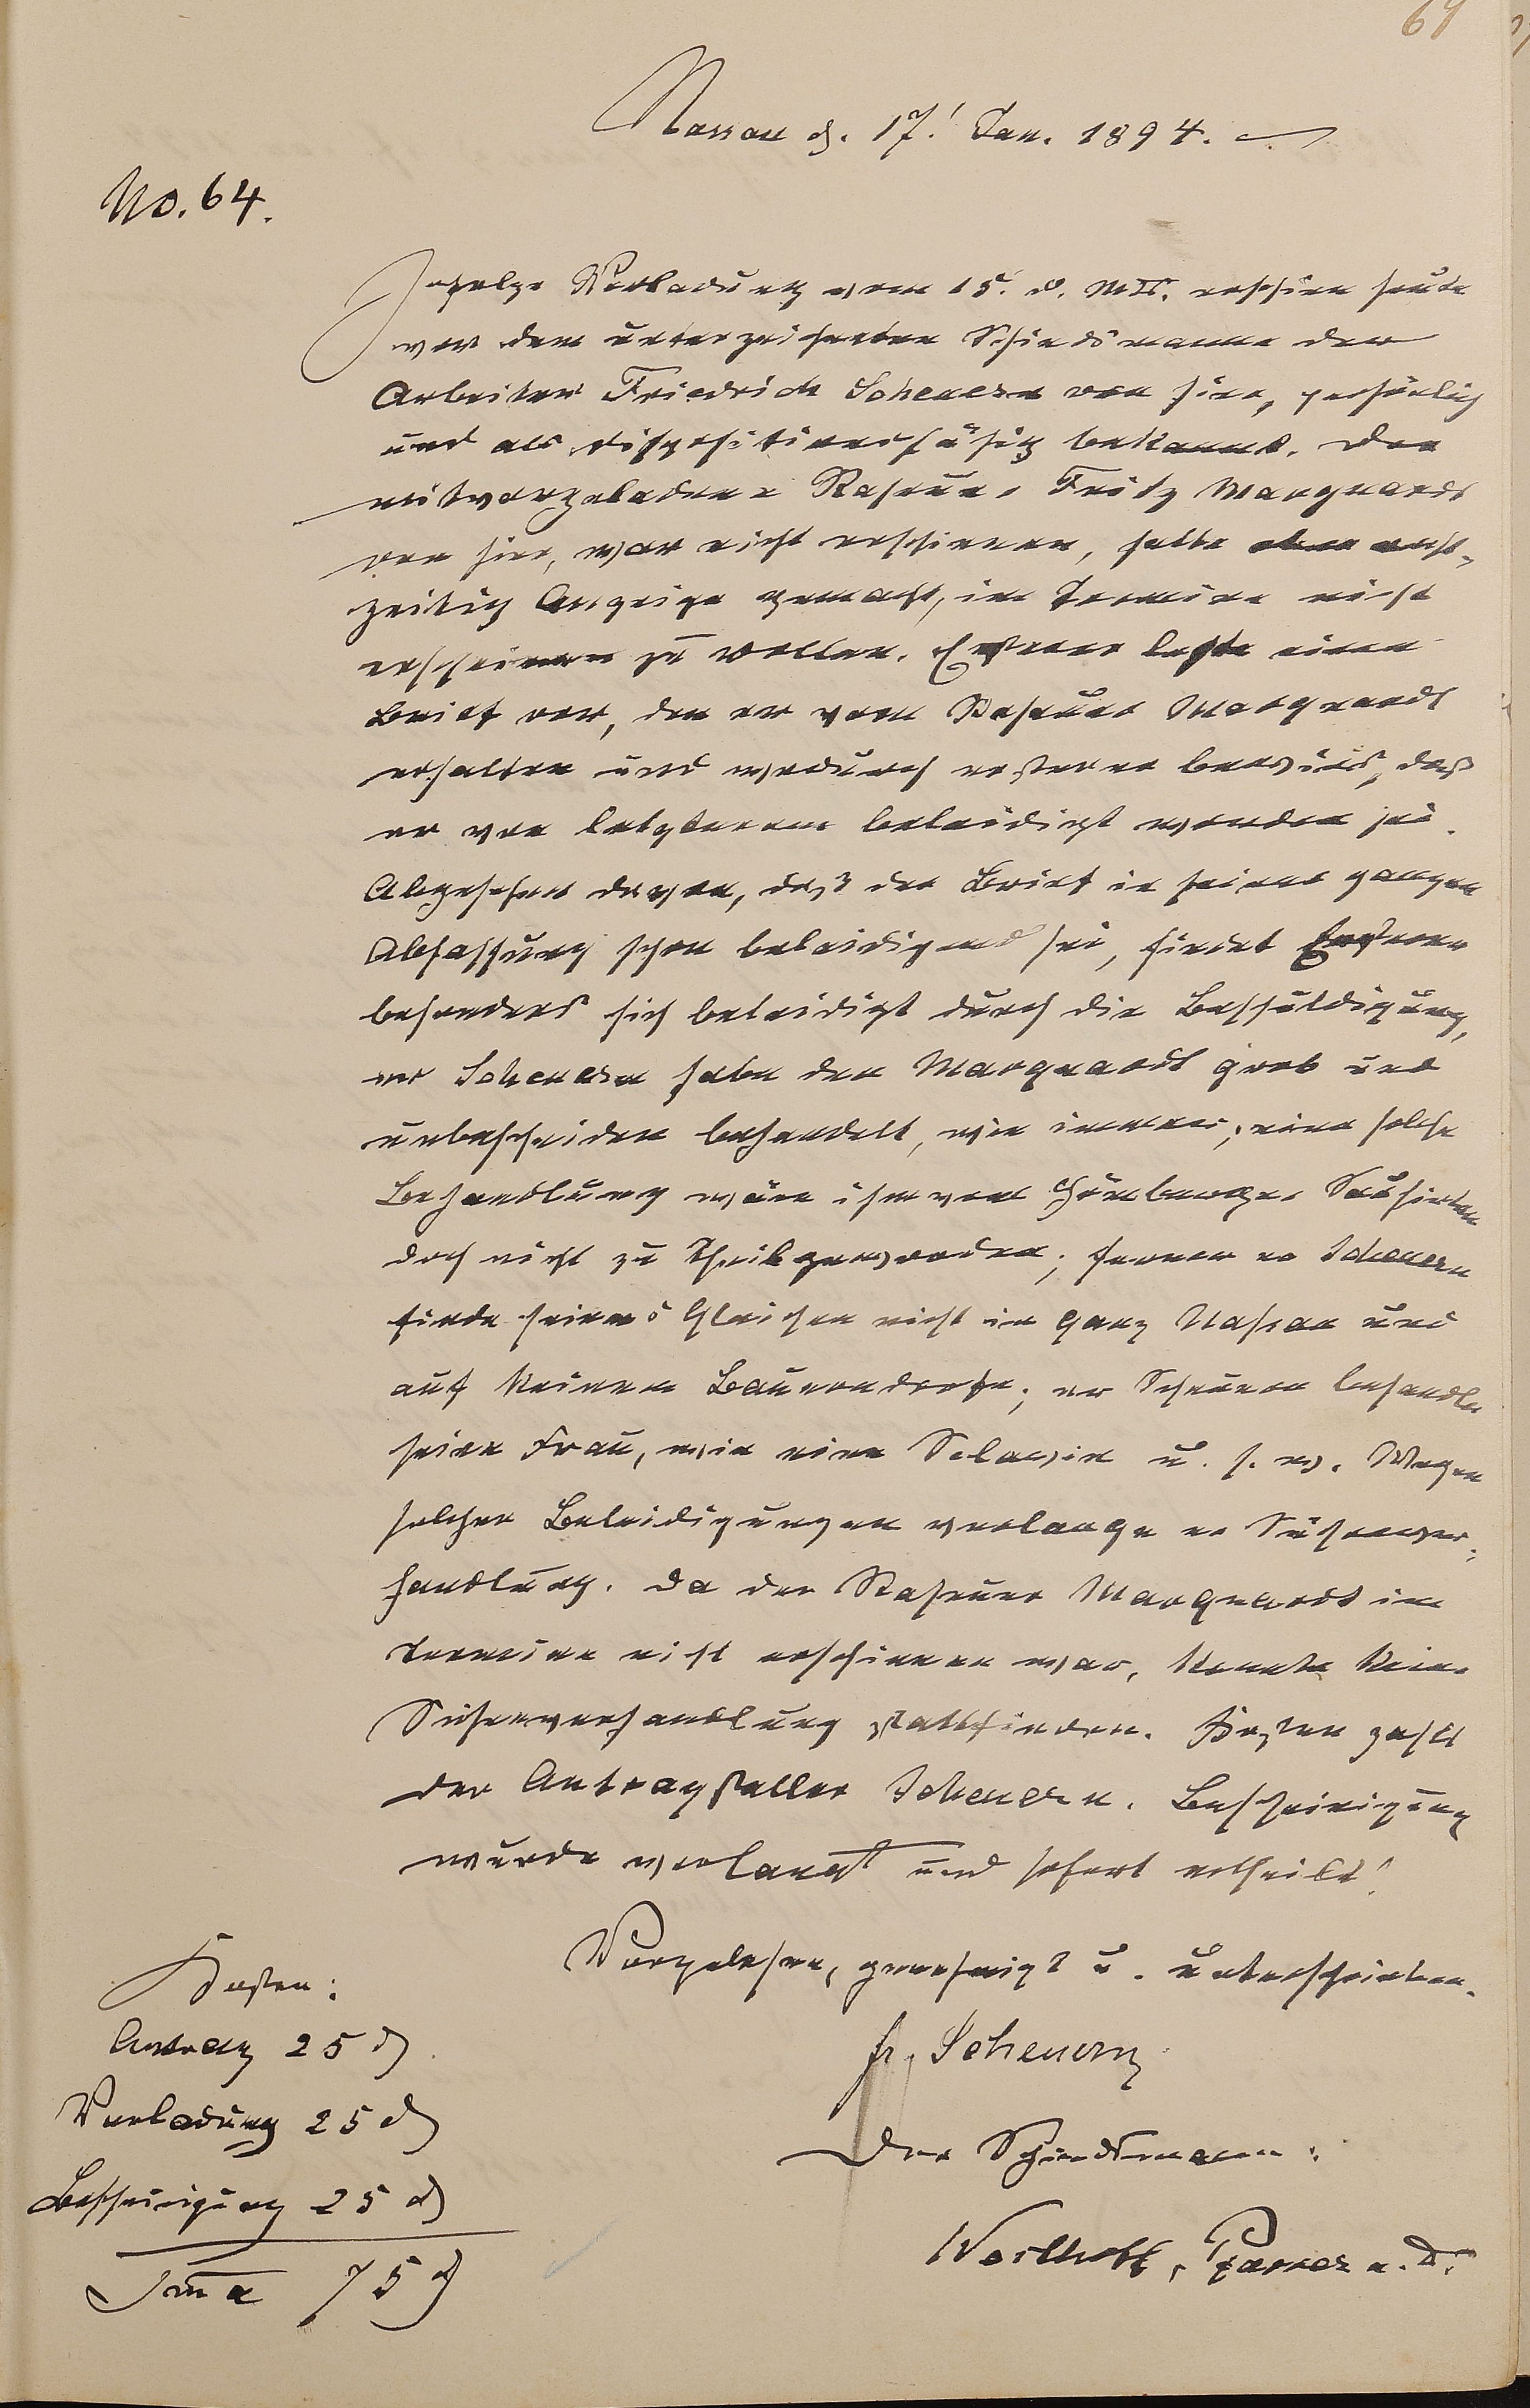 64
Nassau d. 17. Jan. 1894.
No. 64.
Infolge Vorladung vom 15. d. Mts. erschien heute
vor dem unterzeichneten Schiedsmanne der
Arbeiter Friedrich Scheuern von hier, persönlich
und als dispositionsfähig bekannt. Der
mitvorgeladene Fritz Marquardt
von hier, war nicht erschienen, hatte aber recht-
zeitig Anzeige gemacht, im Termine nicht
erscheinen zu wollen. Ersterer legte einen
Brief vor, den er vom Marquardt
erhalten und wodurch ersterer bewies, daß
er von letzterem beleidigt worden sei.
Abgesehen davon, daß der Brief in seiner ganzen
Abfassung schon beleidigend sei, findet Ersterer
besonders sich beleidigt durch die Beschuldigung,
er Scheuern habe den Marquardt grob und
unbescheiden behandelt, wie immer; eine solche
Behandlung wäre ihm vom Sauhirten
doch nicht zu Theil geworden; ferner er Scheuern
finde seines Gleichen nicht in ganz Nassau und
auf keinem Bauerndorfe; er Scheuern behandle
seine Frau, wie eine Sclavin u. s. w. Wegen
solcher Beleidigungen verlange er Sühnever-
handlung. Da der Marquardt im
Termine nicht erschienen war, konnte keine
Sühneverhandlung stattfinden. Kosten zahlt
der Antragsteller Scheuern. Bescheinigung
wurde verlangt und sofort ertheilt!
Vorgelesen, genehmigt u. unterschrieben.
fr. Scheuern
Der Schiedsmann:
Pfarrer a. D.
Kosten:
Antrag 25 ₰
Vorladung 25 ₰
Bescheinigung 25 ₰
Sm̅a 75 ₰